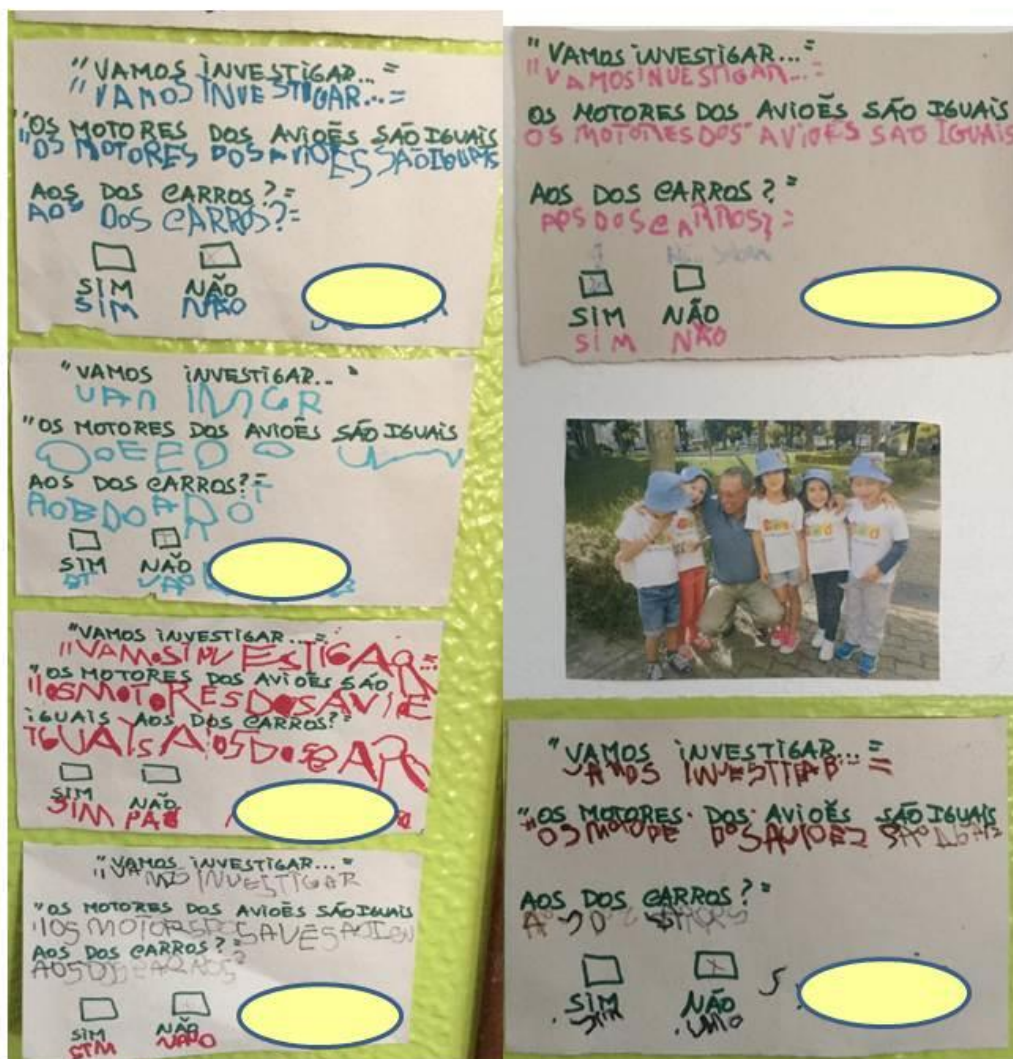 "VAMOS INVESTIGAR..."
"VAMOS INVESTIGAR...=
"OS MOTORES DOS AVIOẼS SÃO IGUAIS
"OS MOTORES DOS AVIOES SAO IGUAIS
AOS DOS CARROS?"
AOS DOS CARROS?=
SIM NÃO
SIM NÃO
"VAMOS INVESTIGAR..."
VAM INVGR
"OS MOTORES DOS AVIOẼS SÃO IGUAIS
AOS DOS CARROS?"
AOBDOARO
SIM NÃO
"VAMOS INVESTIGAR..."
"VAMOSINVESTIGAR...
"OS MOTORES DOS AVIOẼS SÃO
"OSMOTORESDOSAVIE
IGUAIS AOS DOS CARROS?"
IGUAISAOSDOSCAR
SIM NÃO
SIM
"VAMOS INVESTIGAR..."
VAMO INVESTIGAR
"OS MOTORES DOS AVIOẼS SÃO IGUAIS
AOS DOS CARROS?"
SIM NÃO
SIM NÃO
"VAMOS INVESTIGAR..."
"VAMOSINVESTIGAR...=
OS MOTORES DOS AVIOẼS SÃO IGUAIS
OS MOTORES DOS AVIOES SAO IGUAIS
AOS DOS CARROS?"
AOS DOS CARROS?=
SIM NÃO
SIM NÃO
"VAMOS INVESTIGAR..."
"OS MOTORES DOS AVIOẼS SÃO IGUAIS
AOS DOS CARROS?"
SIM NÃO